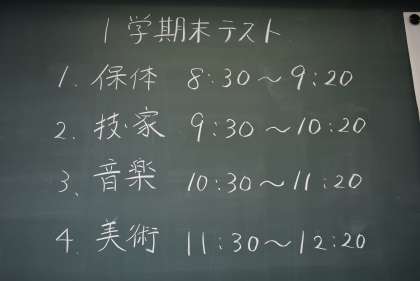 1学期末テスト
1. 保体 8:30～9:20
2. 技・家 9:30～10:20
3、音楽 10:30～11:20
4. 美術 11:30～12:20